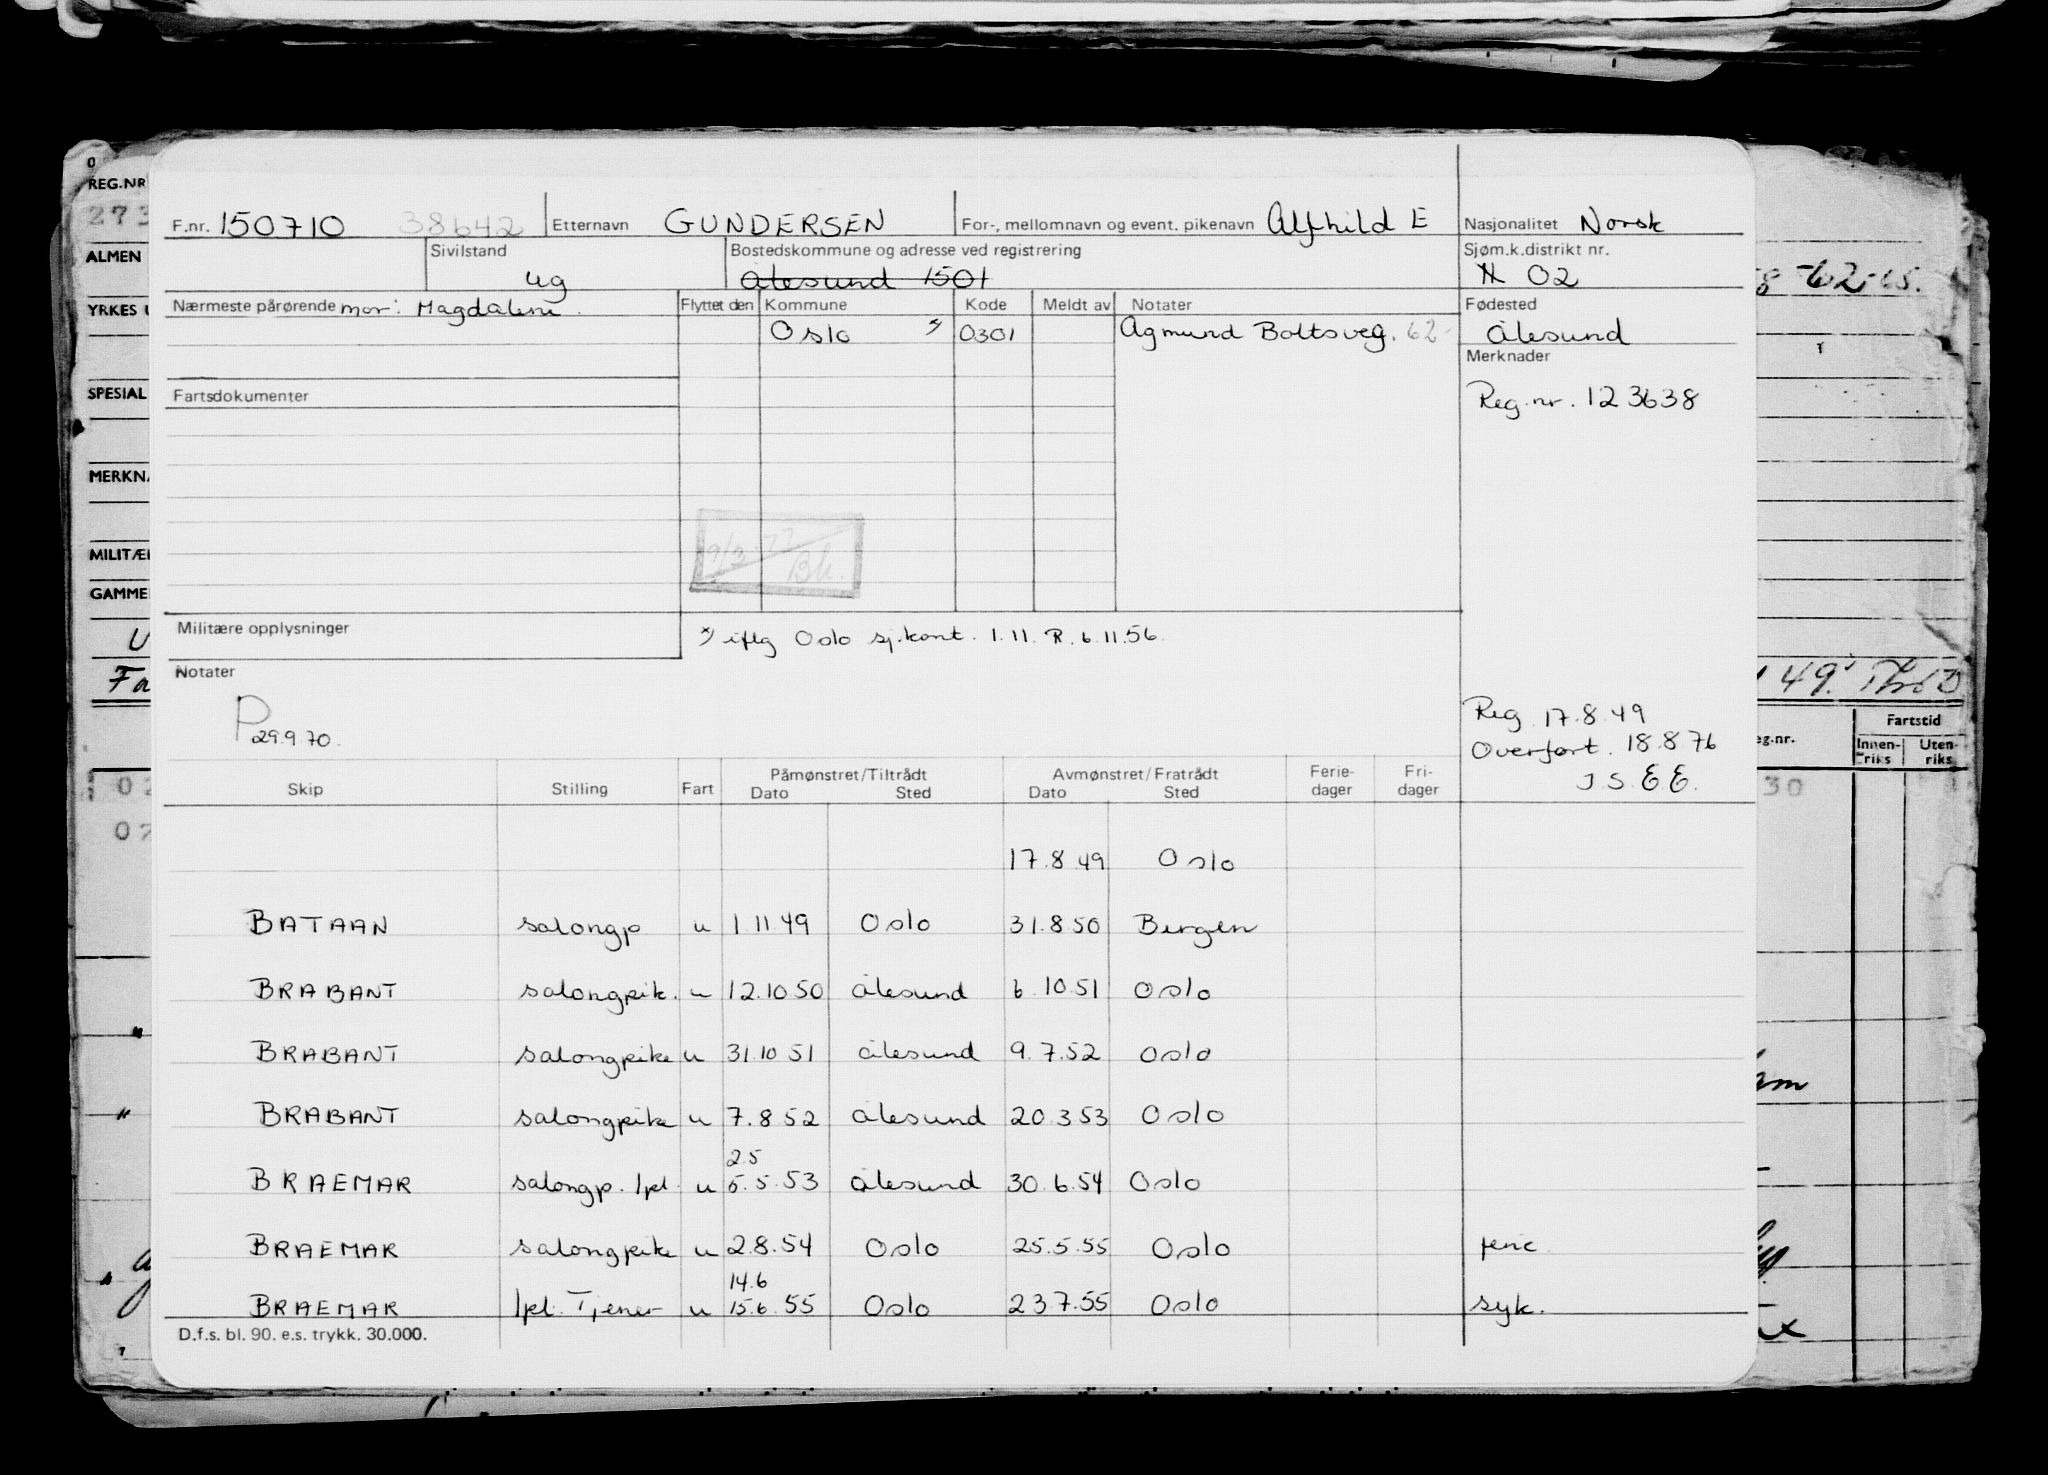 O
REG.NR
273
ALMEN
YRKES
SPESIAL
MERKN
MILITÆ
GAMME
F.nr. 150710 38642 Etternavn GUNDERSEN For-, mellomnavn og event. pikenavn Alfhild E Nasjonalitet Norsk
Sivilstand ug Bostedskommune og adresse ved registrering Ålesund 1501 Sjøm.k.distrikt nr. N 02
Nærmeste pårørende mor: Magdalene. Flyttet den Kommune Kode Meldt av Notater Fødested
Oslo *) 0301 Agmund Boltsveg. 62- Ålesund
Merknader
Fartsdokumenter Reg.nr. 123638
9/3 77 Bh.
Militære opplysninger *) iflg Oslo sj.kont. 1.11. R. 6.11.56.
Notater
P 29.9.70.
Reg 17.8.49
Overført. 18.8.76
J.S. E E.
Skip Stilling Fart Påmønstret/Tiltrådt Dato Sted Avmønstret/Fratrådt Dato Sted Ferie-dager Fri-dager
17.8 49 Oslo
BATAAN salongp u 1.11 49 Oslo 31.8 50 Bergen
BRABANT salongpik. u 12.10 50 Ålesund 6.10.51 Oslo
BRABANT salongpike u 31.10 51 Ålesund 9.7.52 Oslo
BRABANT salongpike u 7.8 52 Ålesund 20.3 53 Oslo
2.5
BRAEMAR salongp. lpl. u 5.5.53 Ålesund 30.6.54 Oslo
BRAEMAR salongpike u 2.8.54 Oslo 25.5.55 Oslo ferie.
14.6
BRAEMAR lpl. Tjener u 15.6.55 Oslo 23 7.55 Oslo syk.
D.f.s. bl. 90. e.s. trykk. 30.000.
-62-65.
49.
eg.nr. Fartstid
Innen-riks Uten-riks
30